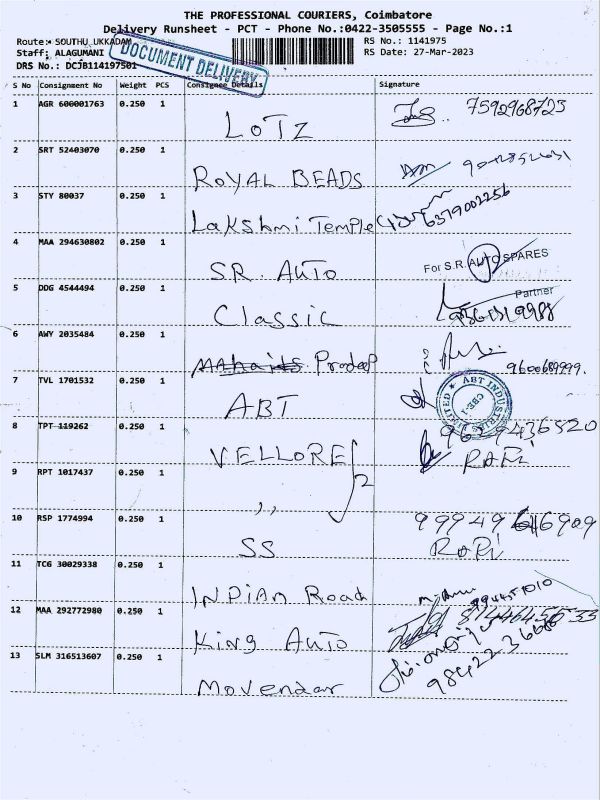 THE PROFESSIONAL COURIERS, Coimbatore
Delivery Runsheet - PCT - Phone No.:0422-3505555 - Page No.:1
Route: SOUTHU_UKKADAM RS No.: 1141975
Staff: ALAGUMANI RS Date: 27-Mar-2023
DRS No.: DCJB114197501
DOCUMENT DELIVERY
S No Consignment No Weight PCS Consignee Details Signature
1 AGR 600001763 0.250 1 LOTZ 7592968723
2 SRT 52403070 0.250 1 ROYAL BEADS
3 STY 80037 0.250 1 Lakshmi Temple 6379002256
4 MAA 294630802 0.250 1 S.R. AUTO For S.R. AUTO SPARES
Partner
5 DDG 4544494 0.250 1 Classic
6 AWY 2035484 0.250 1 Pradeep
7 TVL 1701532 0.250 1 ABT ABT INDUSTRIES LIMITED CBE-1
8 TPT 119262 0.250 1 VELLORE 2 9629436520
RAFI
9 RPT 1017437 0.250 1 ,,
10 RSP 1774994 0.250 1 SS
11 TCG 30029338 0.250 1 INDIAN Road
12 MAA 292772980 0.250 1 King AUTO
13 SLM 316513607 0.250 1 Movendar